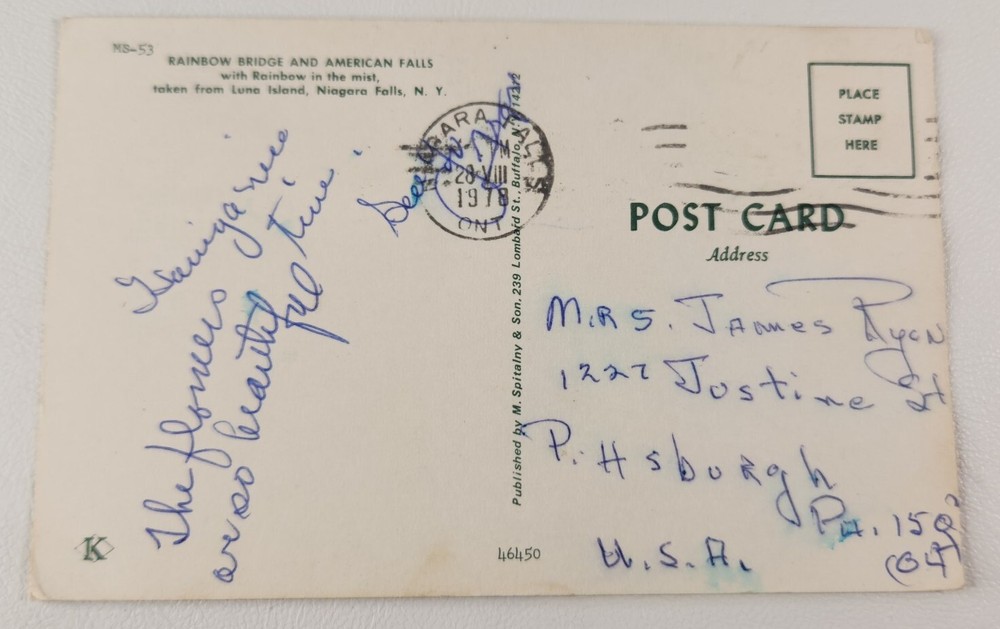 MS-53
RAINBOW BRIDGE AND AMERICAN FALLS
with Rainbow in the mist,
taken from Luna Island, Niagara Falls, N. Y.
The flowers
are so beautiful
time
See
NIAGARA FALLS
28 VIII
1978
ONT
Published by M. Spitalny & Son, 239 Lombard St., Buffalo, N.Y. 
PLACE
STAMP
HERE
POST CARD
Address
MRS. JAMES Ryan
1227 Justine St
Pittsburgh
PA. 15
(04)
U.S.A.
K
46450